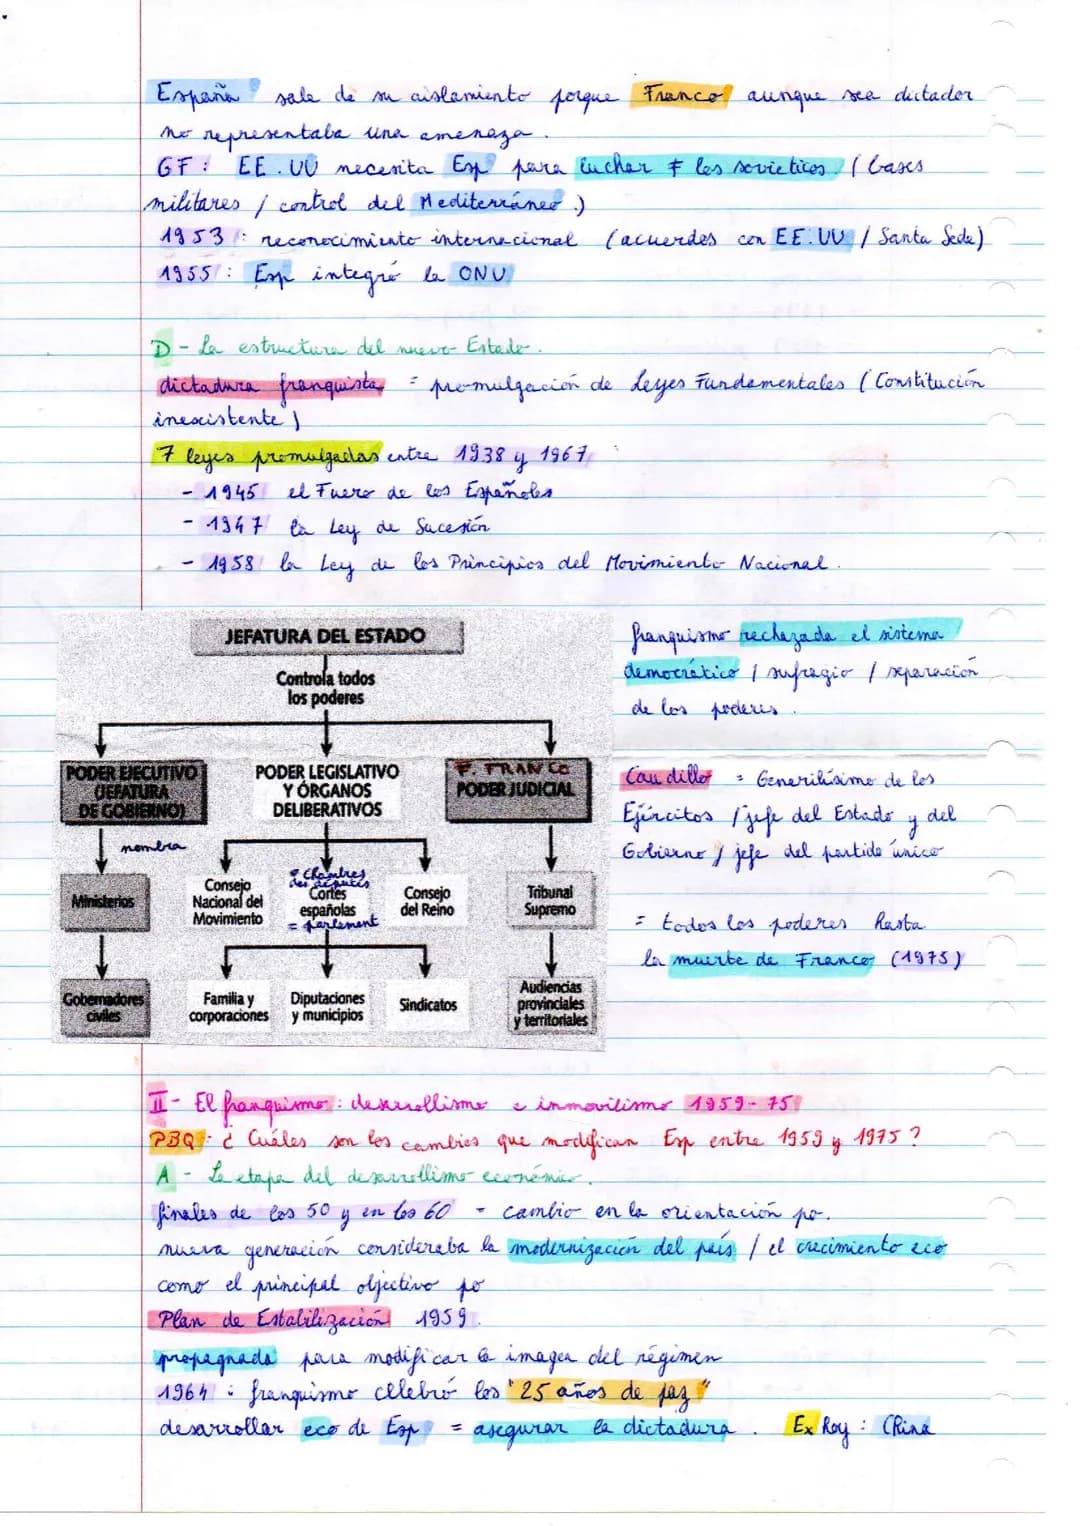 España sale de su aislamiento porque Franco aunque sea dictador
no representaba una amenaza.
GF : EE.UU necesita Esp para luchar ≠ los sovieticos (bases
militares / control del Mediterráneo.)
1953 : reconocimiento internacional (acuerdos con EE.UU / Santa Sede)
1955 : Esp integró la ONU
D - La estructura del nuevo Estado.
dictadura franquista = promulgación de Leyes Fundamentales (Constitución
inexistente)
7 leyes promulgadas entre 1938 y 1967 :
- 1945 el Fuero de los Españoles
- 1947 la Ley de Sucesión
- 1958 la Ley de los Principios del Movimiento Nacional.
JEFATURA DEL ESTADO
Controla todos
los poderes
PODER EJECUTIVO
(JEFATURA
DE GOBIERNO)
PODER LEGISLATIVO
Y ÓRGANOS
DELIBERATIVOS
F. FRANCO
PODER JUDICIAL
nombra
Ministerios
Consejo
Nacional del
Movimiento
* Chambres
des députés
Cortes
españolas
= parlement
Consejo
del Reino
Tribunal
Supremo
Gobernadores
civiles
Familia y
corporaciones
Diputaciones
y municipios
Sindicatos
Audiencias
provinciales
y territoriales
franquismo rechazada el sistema
democrático / sufragio / separación
de los poderes.
Caudillo = Generilísimo de los
Ejércitos / jefe del Estado y del
Gobierno / jefe del partido único
= todos los poderes hasta
la muerte de Franco (1975)
II - El franquismo : desarrollismo e inmovilismo 1959-75
PBQ : ¿ Cuáles son los cambios que modifican Esp entre 1959 y 1975 ?
A - La etapa del desarrollismo económico.
finales de los 50 y en los 60 = cambio en la orientación po.
nueva generación consideraba la modernización del país / el crecimiento eco
como el principal objectivo po
Plan de Estabilización 1959.
propagnada para modificar la imagen del régimen
1964 : franquismo celebró los "25 años de paz"
desarrollar eco de Esp = asegurar la dictadura. Ex Roy : China